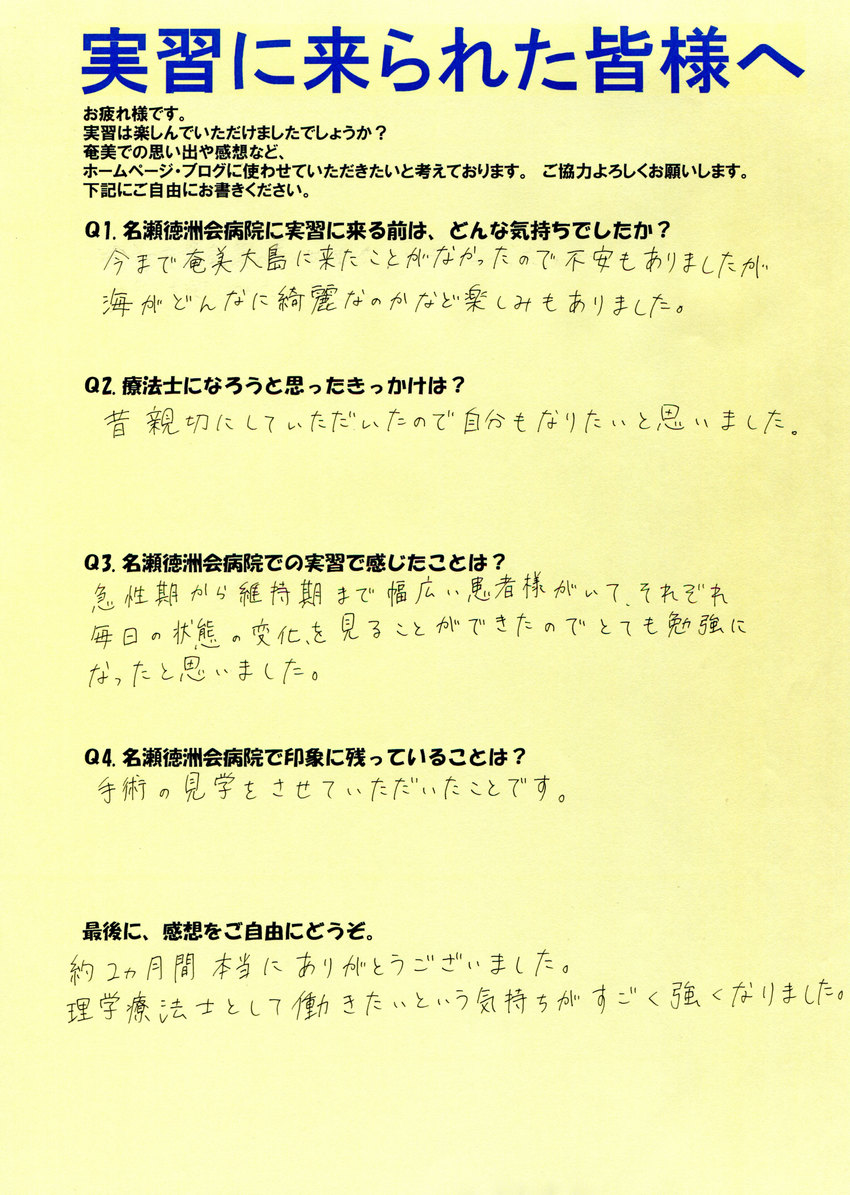 実習に来られた皆様へ
お疲れ様です。
実習は楽しんでいただけましたでしょうか？
奄美での思い出や感想など、
ホームページ・ブログに使わせていただきたいと考えております。　ご協力よろしくお願いします。
下記にご自由にお書きください。
Q1. 名瀬徳洲会病院に実習に来る前は、どんな気持ちでしたか？
今まで奄美大島に来たことがなかったので不安もありましたが
海がどんなに綺麗なのかなど楽しみもありました。
Q2. 療法士になろうと思ったきっかけは？
昔 親切にしていただいたので自分もなりたいと思いました。
Q3. 名瀬徳洲会病院での実習で感じたことは？
急性期から維持期まで幅広い患者様がいて、それぞれ
毎日の状態の変化を見ることができたのでとても勉強に
なったと思いました。
Q4. 名瀬徳洲会病院で印象に残っていることは？
手術の見学をさせていただいたことです。
最後に、感想をご自由にどうぞ。
約2ヵ月間 本当にありがとうございました。
理学療法士として働きたいという気持ちがすごく強くなりました。